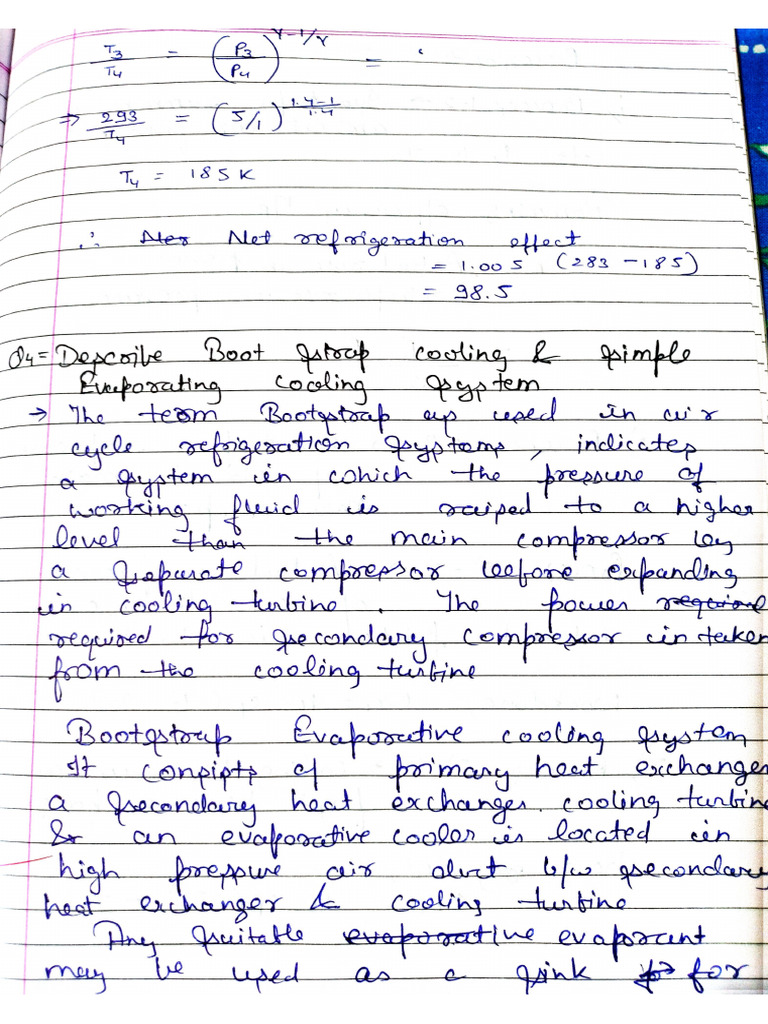 T3/T4 = (P3/P4)^γ-1/γ =
⇒ 293/T4 = (5/1)^1.4-1/1.4
T4 = 185 K
∴ Net refrigeration effect
= 1.005 (283 - 185)
= 98.5
Q4= Describe Boot strap cooling & simple
Evaporating cooling system
→ The term Bootstrap as used in air
cycle refrigeration systems, indicates
a system in which the pressure of
working fluid is raised to a higher
level than the main compressor by
a separate compressor before expanding
in cooling turbine. The power
required for secondary compressor in taken
from the cooling turbine
Bootstrap Evaporative cooling system
It consists of primary heat exchanger
a secondary heat exchanger. cooling turbine
& an evaporative cooler is located in
high pressure air duct b/w secondary
heat exchanger & cooling turbine
Any suitable evaporant
may be used as a sink for